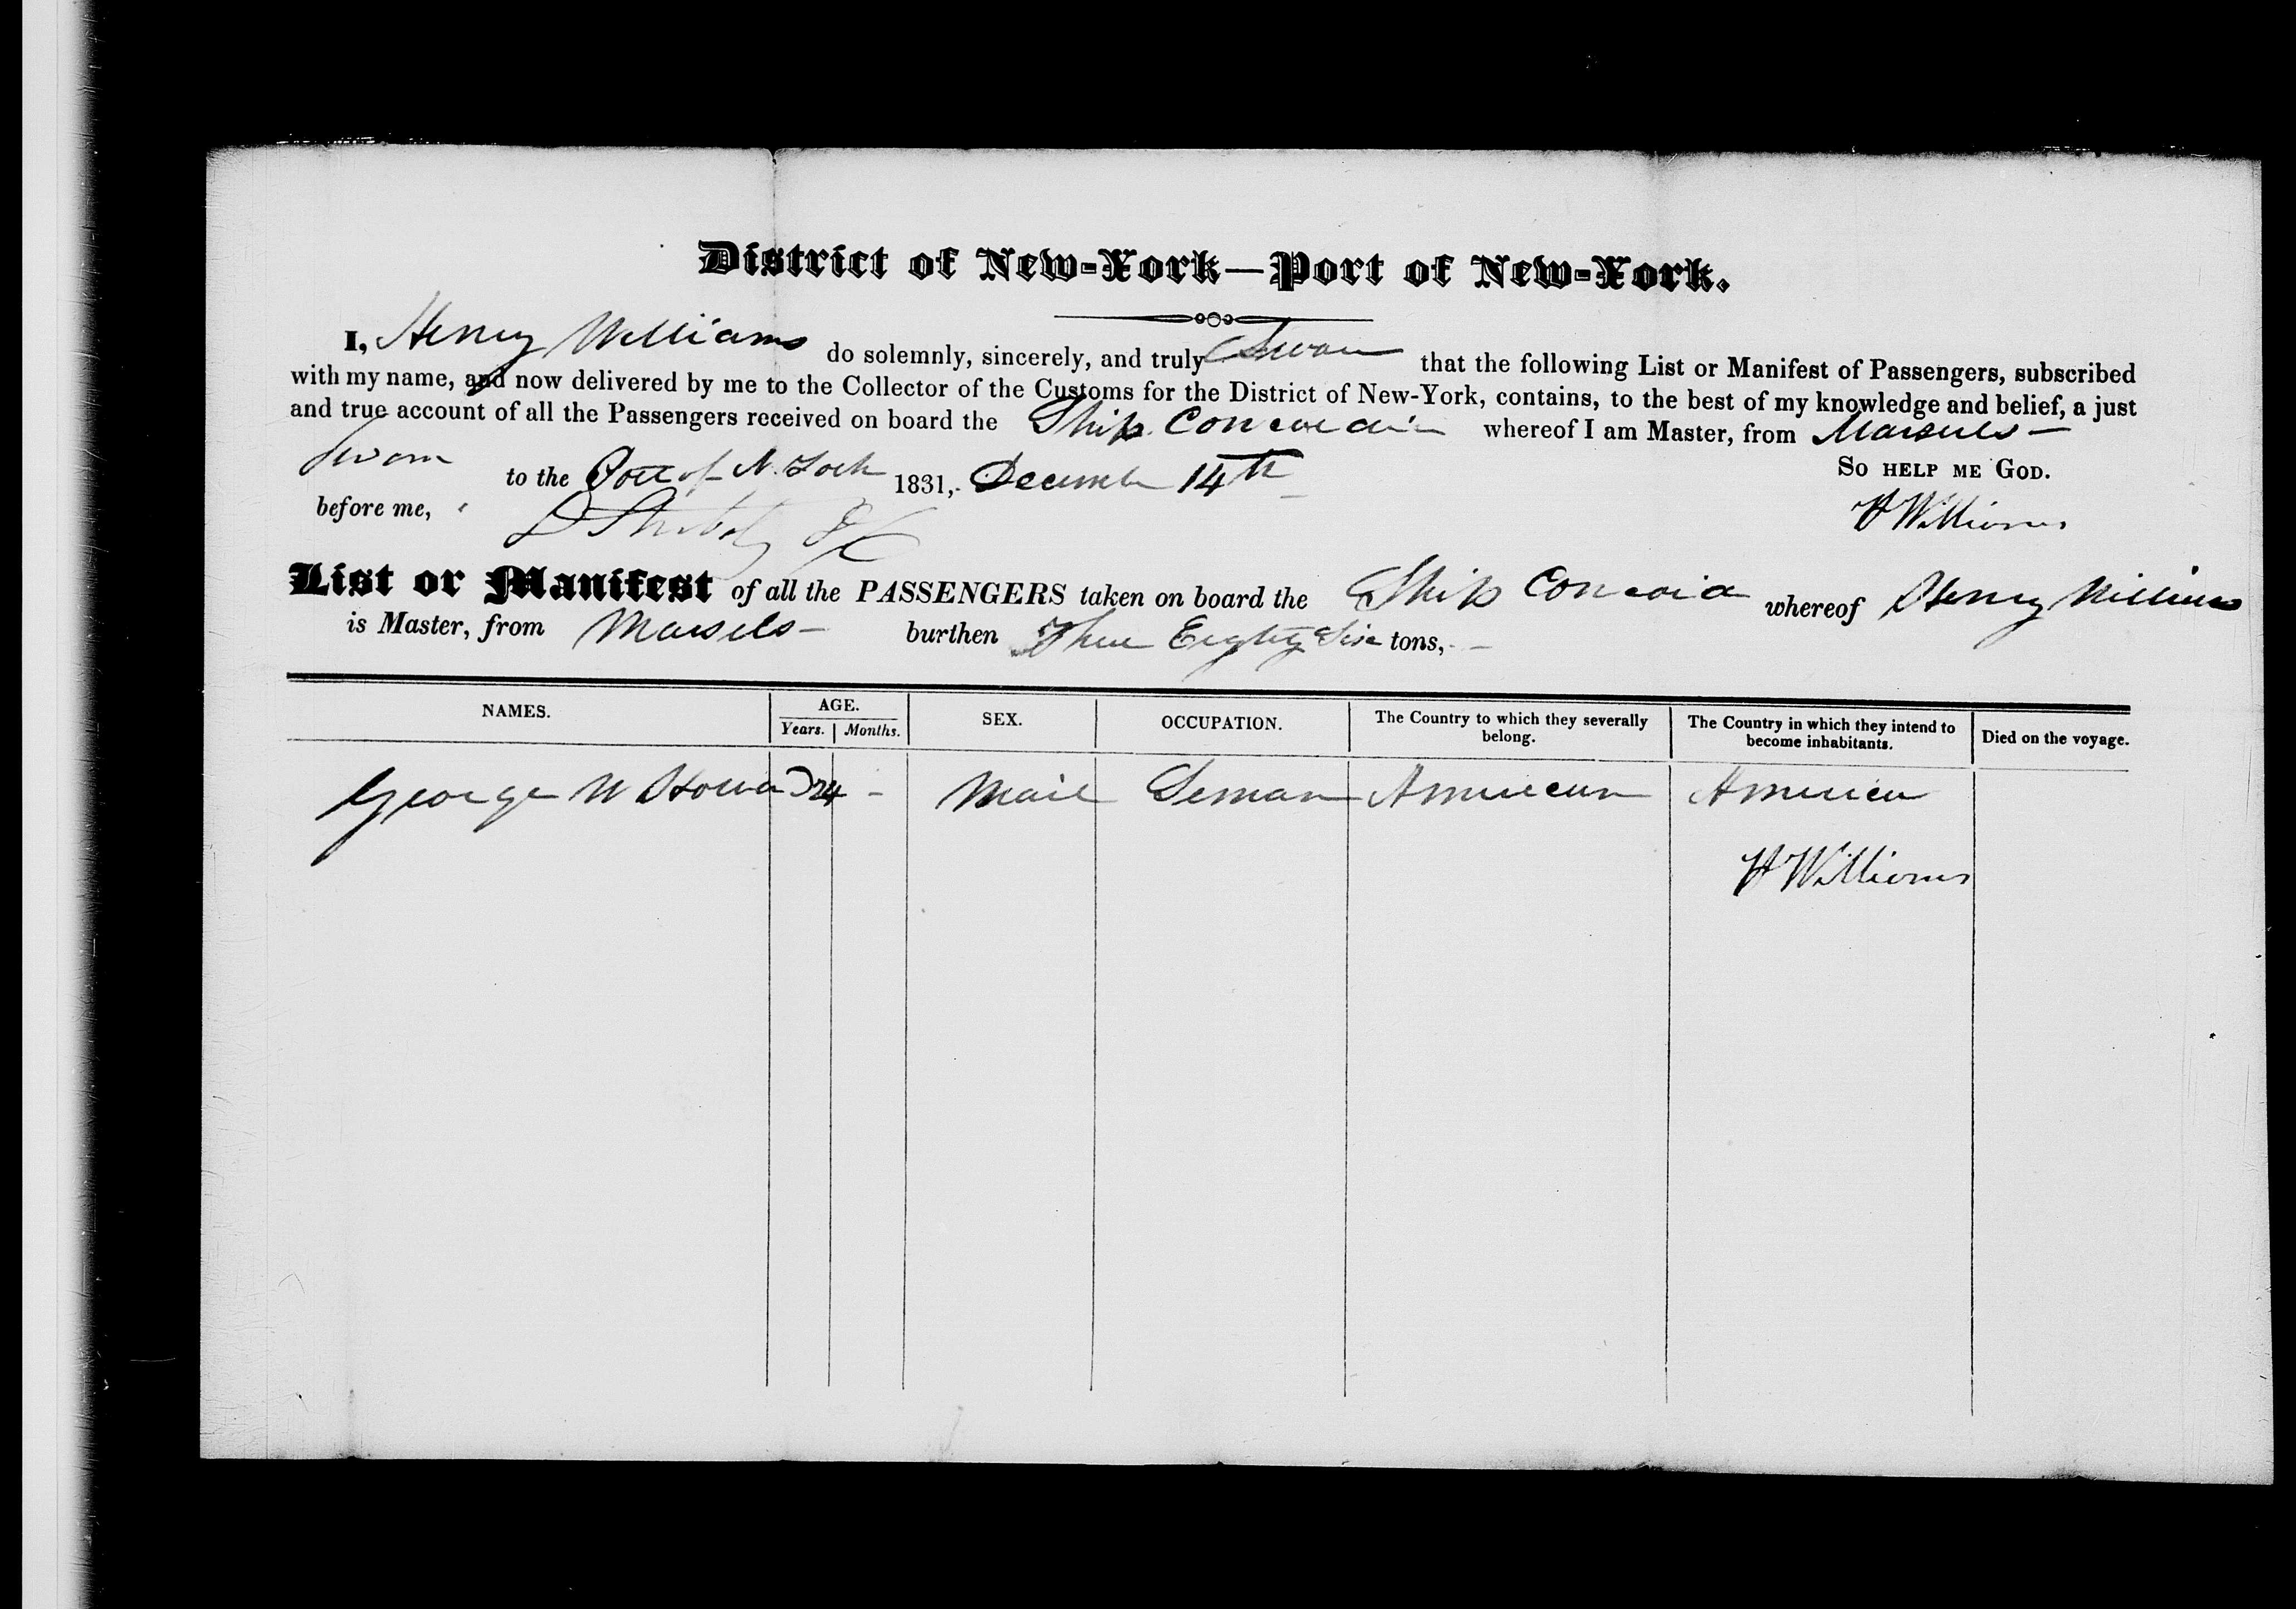 District of New-York—Port of New-York.
I, Henry Williams do solemnly, sincerely, and truly Swear that the following List or Manifest of Passengers, subscribed
with my name, and now delivered by me to the Collector of the Customs for the District of New-York, contains, to the best of my knowledge and belief, a just
and true account of all the Passengers received on board the Ship whereof I am Master, from Marseles
Sworn to the Port of N. York 1831, December 14th So help me God.
before me, H Williams
List or Manifest of all the PASSENGERS taken on board the Ship whereof Henry Williams
is Master, from Marsels burthen Three Eighty Six tons,
NAMES. AGE. Years. Months. SEX. OCCUPATION. The Country to which they severally belong. The Country in which they intend to become inhabitants. Died on the voyage.
George W Howard 24 - Male Seman American America
H Williams